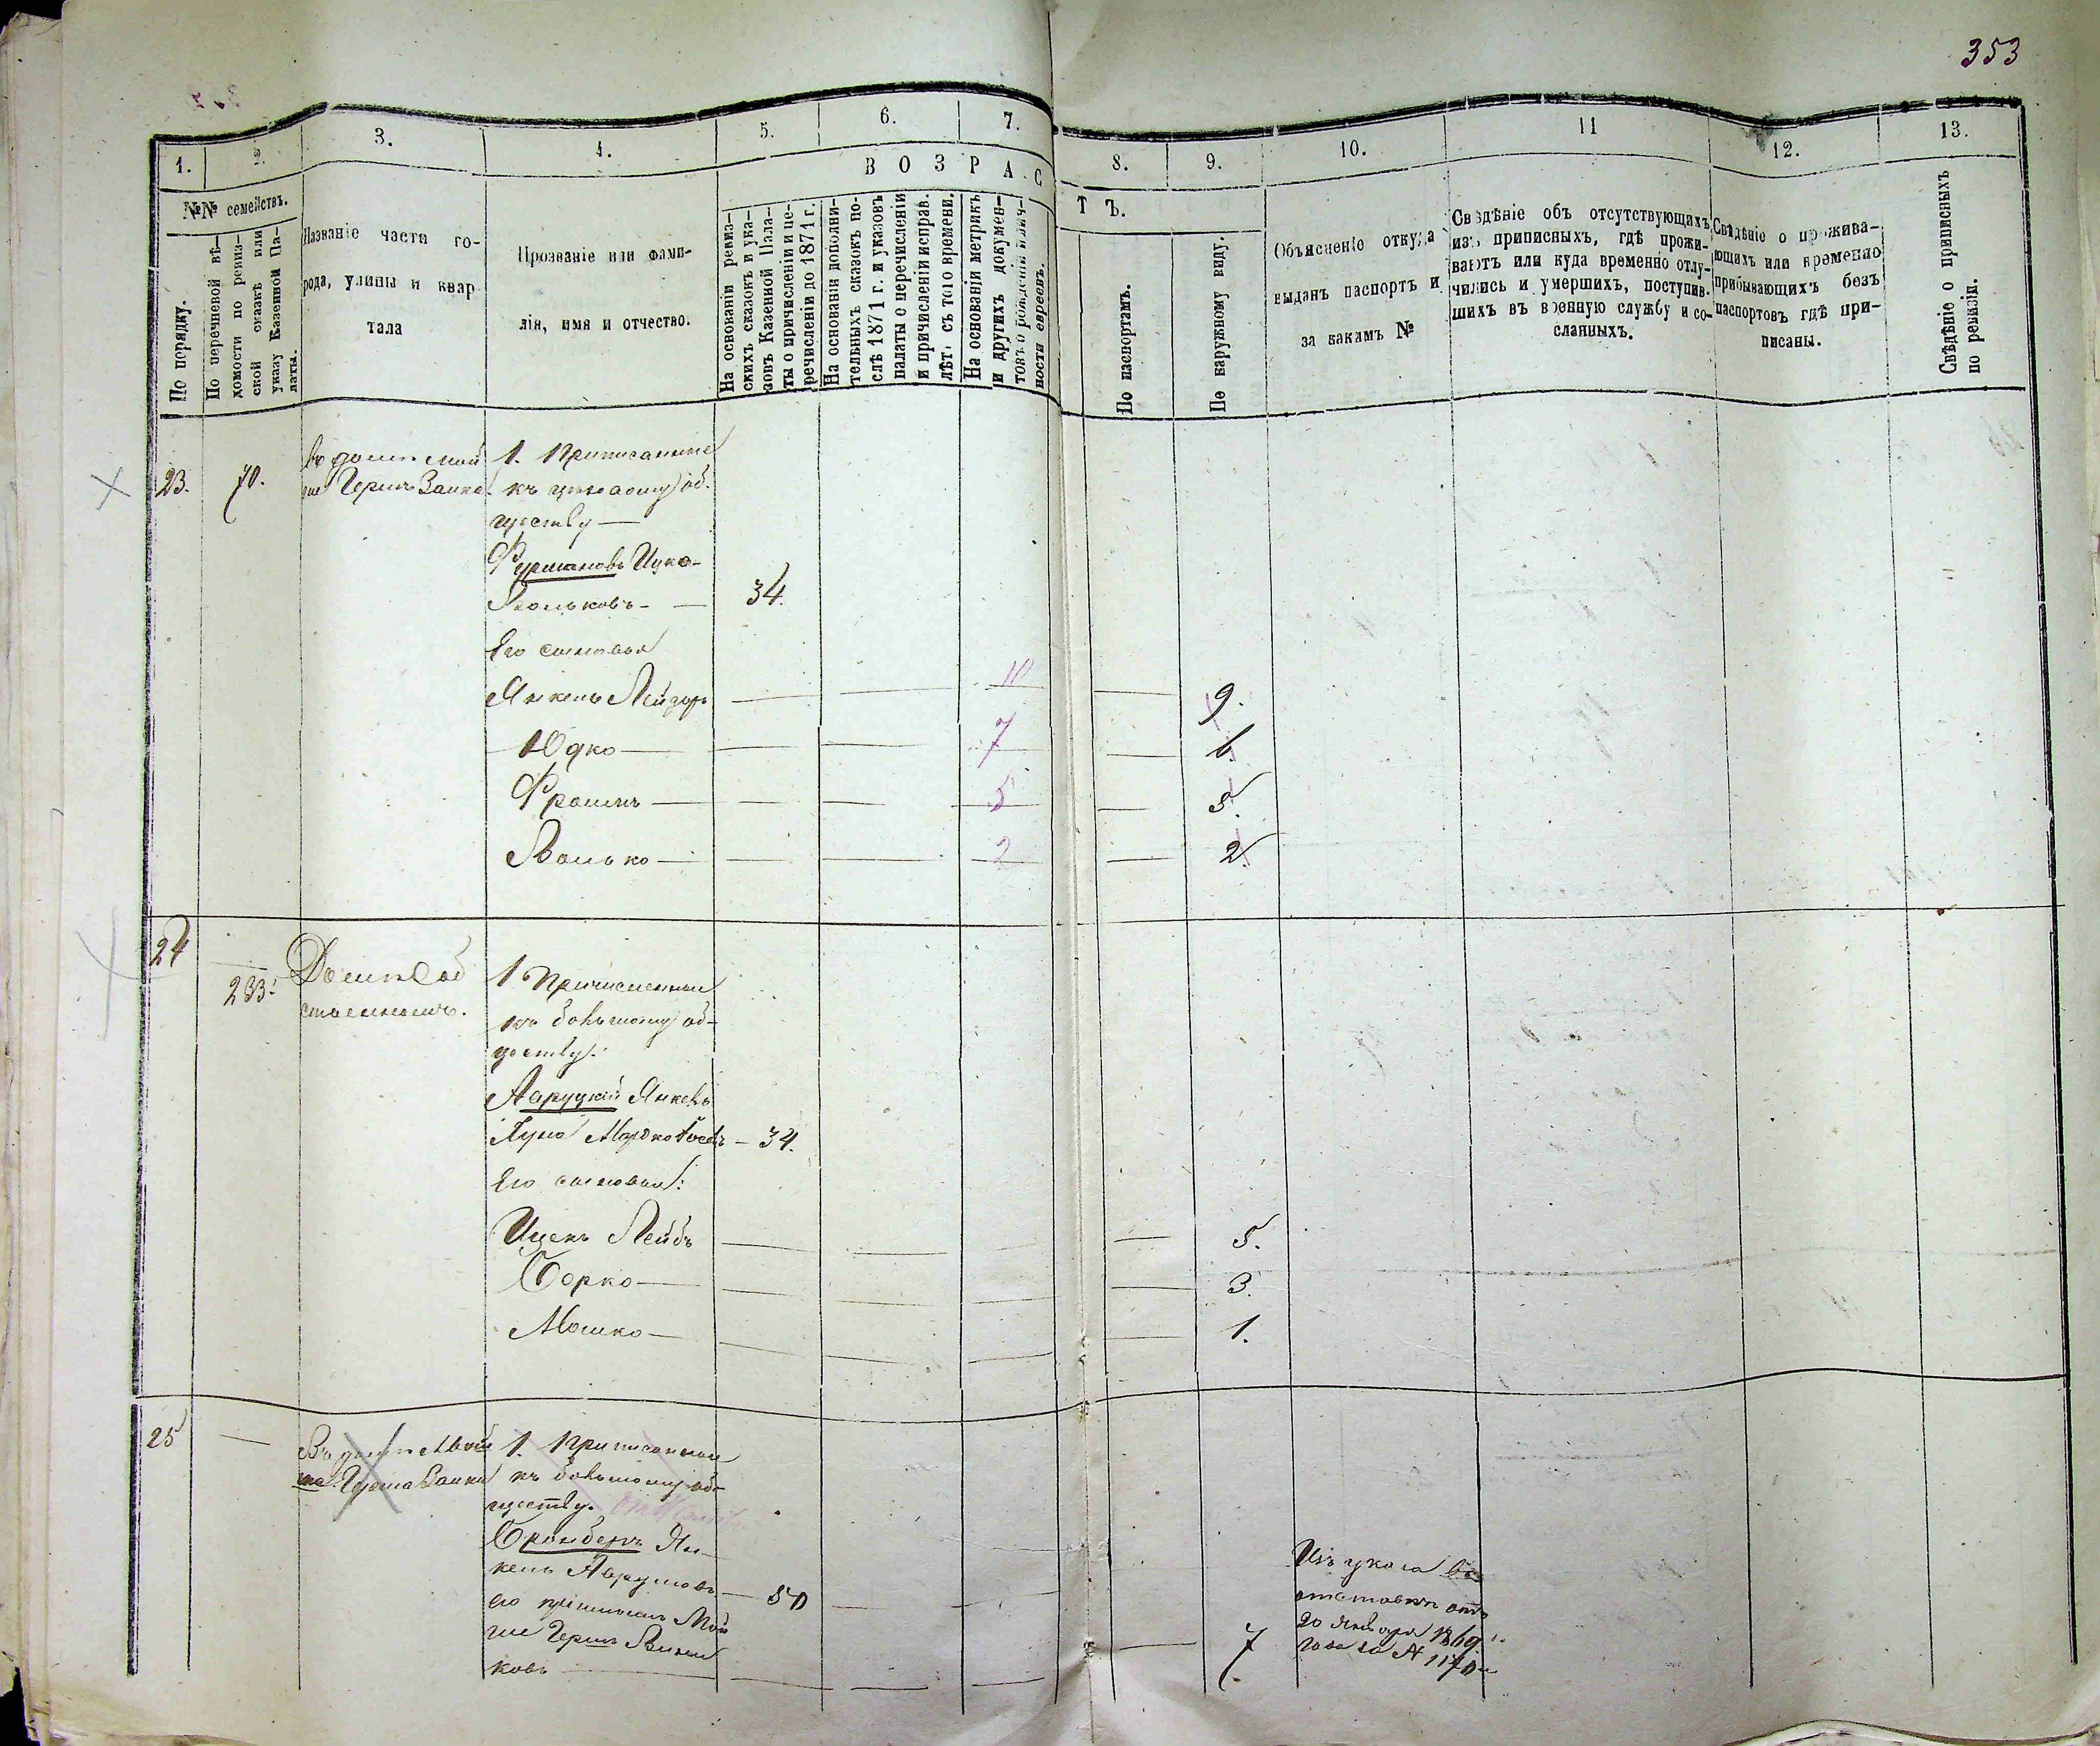 353
1.
2.
3.
4.
5.
6.
7.
8.
9.
10.
11
12.
13.
№№ семействъ.
По порядку.
По перечневой вѣ-
домости по ревиз-
ской сказкѣ или
указу Казенной Па-
латы.
Названіе части го-
рода, улицы и квар
тала
Прозваніе или фами-
лія, имя и отчество.
ВОЗРАС
ТЪ.
На основаніи ревиз-
скихъ сказокъ и ука-
зовъ Казенной Пала-
ты о причисленіи и пе-
речисленіи до 1871 г.
На основаніи дополни-
тельныхъ сказокъ по-
слѣ 1871 г. и указовъ
палаты о перечисленіи
и причисленіи исправ.
лѣт. съ того времени.
На основаніи метрикъ
и другихъ докумен-
товъ о рожденіи
ности евреевъ.
По паспортамъ.
По наружному виду.
Объясненіе откуда
выданъ паспортъ и
за какимъ №
Свѣдѣніе объ отсутствующихъ
изъ приписныхъ, гдѣ прожи-
ваютъ или куда временно отлу-
чились и умершихъ, поступив-
шихъ въ военную службу и со-
сланныхъ.
Свѣдѣніе о прожива-
ющихъ или временно
прибывающихъ безъ
паспортовъ гдѣ при-
писаны.
Свѣдѣніе о приписныхъ
по ревизіи.
23.
70.
въ домѣ Мой
ше Герша Заика
1. Приписанные
къ об-
ществу
Фурмановъ Ицко-
34.
Его сыновья
Янкель Лейзоръ
10
9.
Юдко
7
6.
Фроимъ
5
5.
Волько
2
2.
24
233.
Домѣ Соб
ственномъ.
1. Причисленные
къ большому об-
ществу:
Авруцкій Янкель
Мордковъ
34.
Его сыновья:
Ицекъ Лейбъ
5.
Берко
3.
Мошко
1.
25
Въ домѣ Мой
ше Герша Заики
1. Приписанный
къ большому об-
ществу.
Бромбергъ Ян-
кель Аврумовъ
50
его Мой
ше Гершъ
ковъ
7
Изъ указа
отставкѣ отъ
20 Января 1869
года за № 1170